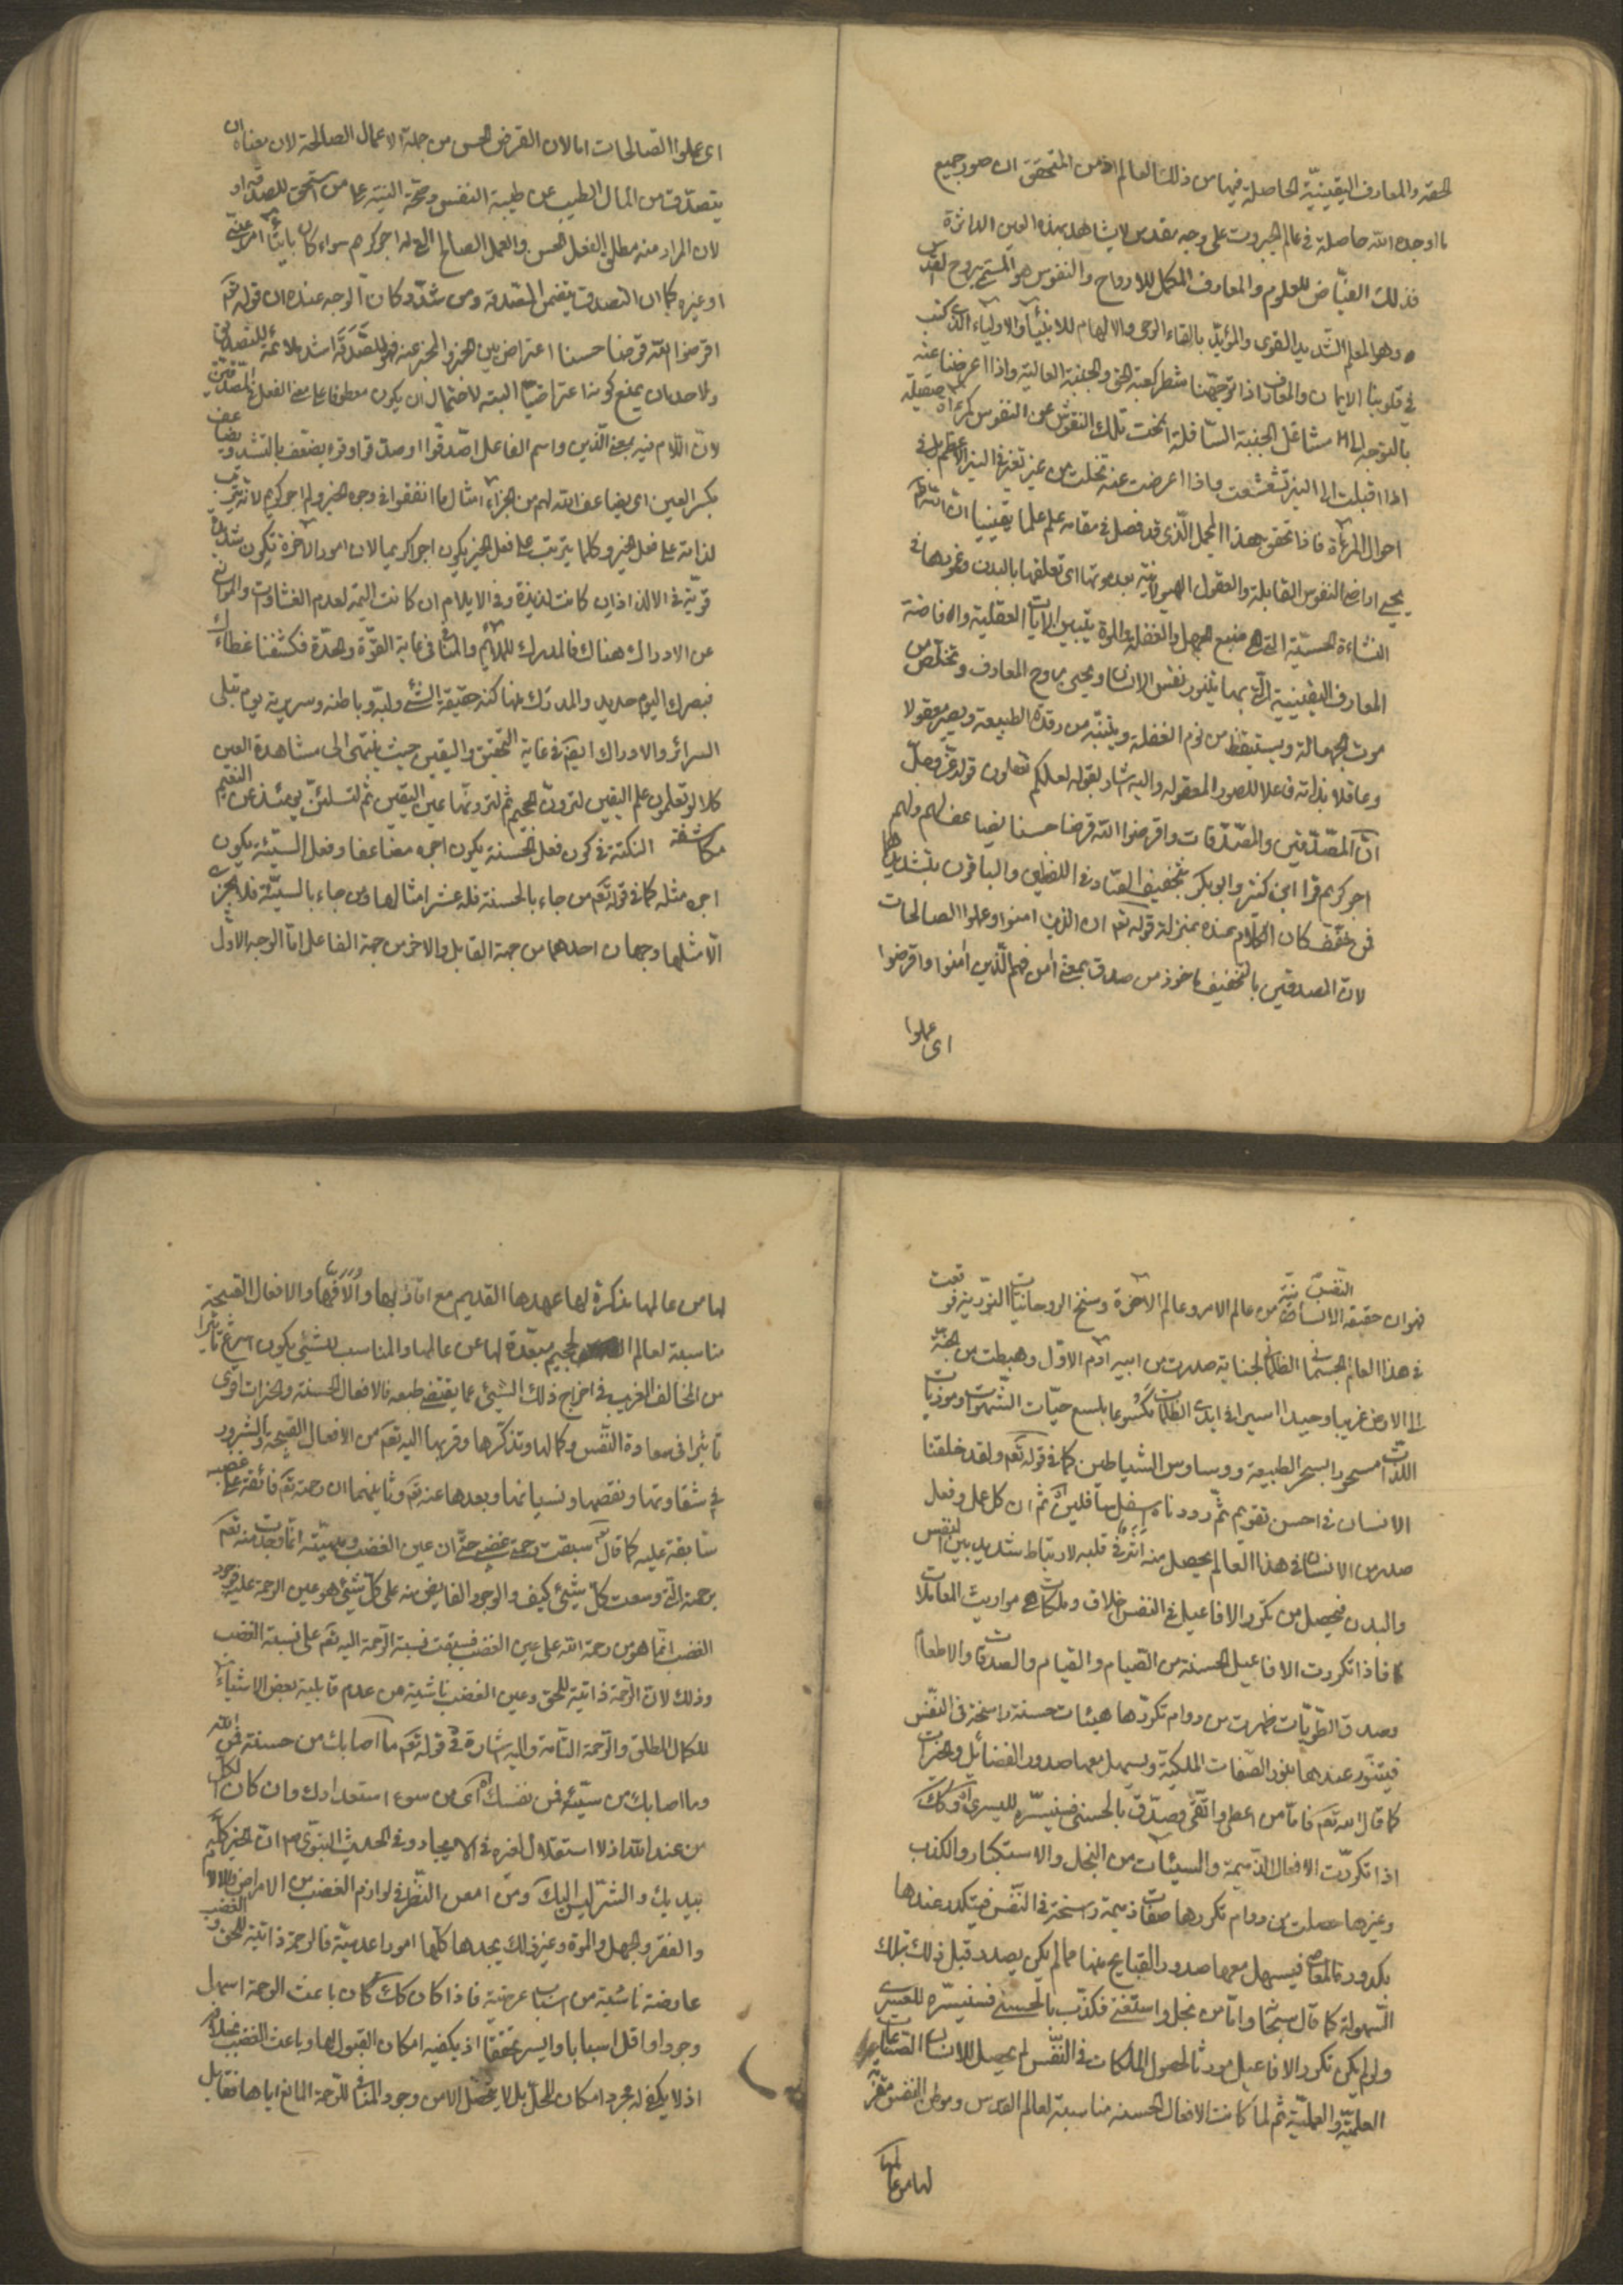 الحقة والمعارف اليقينيّة الحاصلة فيها من ذلك العالم اذ من المتحقق ان صور جميع
ما اوجده الله حاصلة في عالم الجبروت على وجه مقدس لا يشاهد بهذه العين الداثرة
فذلك الفيّاض للعلوم والمعارف المكمل للارواح والنفوس هو المسمى بروح القدس
وهو المعلم الشديد القوى والمؤيّد بالقاء الوحى والالهام للانبياء والاولياء الذى كتب
في قلوبنا الايمان والمعارف اذا توجّهنا شطر كعبة الحق والجنبة العالية واذا اعرضنا عنه
بالتوجه الى مشاغل الجنبة السافلة انمحت تلك النقوش عن النفوس كمرآة صقيلة
اذا اقبلت الى النير تشعشعت واذا اعرضت عنه تخلت من غير تغير في النير الاعظم بل في
احوال المرآة فاذا تحقق هذا المجمل الّذي قد فصل في مقامه علم علما يقينيا ان الله تعم
يحيى اراضى النفوس القابلة والعقول الهيولانية بعد موتها اى تعلقها بالبدن وغروبها في
النشاءة الحسّيّة التي هي منبع الجهل والغفلة والموت بتبيين الايات العقلية والافاضة
المعارف اليقينية الّتي بها يتنور نفس الانسان ويحيى بروح المعارف وتخلّص من
موت الجهالة ويستيقظ من نوم الغفلة ويتنبّه من رقدة الطبيعة ويصير معقولا
وعاقلا بذاته فاعلا للصور المعقوله واليه اشار بقوله لعلكم تعقلون قوله عزّ وجلّ
انّ المصّدّقين والمصّدّقات واقرضوا الله قرضا حسنا يضاعف لهم ولهم
اجر كريم قرا ابن كثير وابو بكر بتخفيف الصّاد في اللفظين والباقون بتشديدها
فمن خفّف كان الكلام عنده بمنزلة قوله تعم ان الذين امنوا وعملوا الصالحات
لان المصدقين بالتخفيف ماخوذ من صدق بمعنى امن فهم الّذين امنوا واقرضوا
اى عملوا
اى عملوا الصّالحات امالان القرض الحسن من جملة الاعمال الصالحة لان معناه ان
يتصدّق من المال الطيب عن طيبة النفس وصحّة النيّة على من يستحق للصدقة او
لان المراد منه مطلق الفعل الحسن والعمل الصالح الذى له اجر كريم سواء كان
او غيره كما ان التصدق يتضمن الصدقة ومن شدّد كان الوجه عنده ان قوله تعم
اقرضوا الله قرضا حسنا اعتراض بين الخبر والمخبر عنه فهو للصّدقة اشد ملائمة للتصديق
ولاحد ان يمنع كونه اعتراضيّا البتّه لاحتمال ان يكون معطوفا على معنى الفعل في المصّدّقين
لانّ اللّام فيه بمعنى الّذين واسم الفاعل اصّدّقوا او صدقوا وقرء يضعّف بالتشديد ويضاعف
بكسر العين اى يضاعف الله لهم من الجزاء امثال ما انفقوا في وجوه الخير ولهم اجر كريم لانه يترتب
لذاته على فعل الخير وكلما يترتب على فعل الخير يكون اجرا كريما لان امور الاخرة تكون شديدة
قويّة في الالذاذ ان كانت لذيذة وفي الايلام ان كانت اليمة لعدم الغشاوات والموانع
عن الادراك هناك فالمدرك للملائم والمنافى في غاية القوّة والحدّة فكشفنا غطاءك
فبصرك اليوم حديد والمدرك بها كنه حقيقة الشئ ولبّه وباطنه وسريرته يوم تبلى
السرائر والادراك ايضا في غاية التحقيق واليقين حيث ينتهى الى مشاهدة العين
كلا لو تعلمون علم اليقين لترونّ الجحيم ثم لترونّها عين اليقين ثم لتسئلنّ يومئذ عن النعيم
مكاشفة النكتة في كون فعل الحسنة يكون اجره مضاعفا وفعل السيّئة يكون
اجره مثله كما في قوله تعم من جاء بالحسنة فله عشر امثالها ومن جاء بالسيّئة فلا يجزى
الّا مثلها وجهان احدهما من جهة القابل والاخر من جهة الفاعل امّا الوجه الاول
فهو ان حقيقة النفس الانسانية من عالم الامر وعالم الاخرة وسنخ الروحانيات النوّرية فوقعت
في هذا العالم الجسمانى الظلمانى لجناية صدرت من ابيه آدم الاول وهبطت من الجنّة
الى الارض غريبا وحيدا اسيرا في ايدى الظلمات ملسوعا بلسع حيّات الشّهوات وموذيات
اللذّات مسحورا بسحر الطبيعة ووساوس الشياطين كما في قوله تعم ولقد خلقنا
الانسان في احسن تقويم ثمّ رددناه اسفل سافلين ثم ان كل عمل وفعل
صدر من الانسان في هذا العالم يحصل منه اثر في قلبه لارتباط شديد بين النفس
والبدن فيحصل من تكرر الافاعيل في النفس اخلاق وملكات هي مواريث المعاملات
فاذا تكررت الافاعيل الحسنة من الصّيام والقيام والصدقات والاطعام
وصدق الطّويّات ظهرت من دوام تكرّرها هيئات حسنة راسخة في النفس
فيتنوّر عندها بنور الصّفات الملكيّة ويسهل معها صدور الفضائل والخيرات
كما قال الله تعم فامّا من اعطى واتّقى وصدّق بالحسنى فسنيسّره لليسرى وكذلك
اذا تكررّت الافعال الذّميمة والسيئات من البخل والاستكبار والكذب
وغيرها حصلت من دوام تكررها صفات ذميمة راسخة في النّفس فيتكدر عندها
بكدورة المعاصى فيسهل معها صدور القبايح عنها ممالم يكن يصدر قبل ذلك بتلك
السّهولة كما قال سبحانه وامّا من بخل واستغنى فكذّب بالحسنى فسنيسّره للعسرى
ولو لم يكن تكرر الافاعيل مورثا لحصول الملكات في النّفس لم يحصل للانسان الصّناعات
العلميّة والعمليّة ثم لما كانت الافعال الحسنه مناسبة لعالم القدس وموطن النفس مقرّبة
لها من عالمها
لها من عالمها مذكّرة لها عهدها القديم مع اترابها وألّافها والافعال القبيحة
مناسبة لعالم الجحيم مبعّدة لها عن عالمها والمناسب للشئ يكون اسرع تأثيرا
من المخالف الغريب في اخراج ذلك الشئ عما يقتضى طبعه فالافعال الحسنة والخيرات اقوى
تأثيرا في سعادة النّفس وكمالها وتذكّرها وقربها اليه تعم من الافعال القبيحة والشرور
في شقاوتها ونقصها ونسيانها وبعدها عنه تعم وثانيهما ان رحمته تعم فائقة على غضبه
سابقة عليه كما قال سبقت رحمتى غضبى حتّى ان عين الغضب انّما وجدت منه تعم
برحمته الّتى وسعت كلّ شيئ كيف والوجود الفايض منه على كلّ شيئ هو عين الرحمة عليه فوجود
الغضب انّما هو من رحمة الله على عين الغضب فسبقت نسبة الرّحمة اليه تعم على نسبة الغضب
وذلك لان الرّحمة ذاتية للحق وعين الغضب ناشئة من عدم قابلية بعض الاشياء
للكمال المطلق والرّحمة التّامة واليه اشارة في قوله تعم ما اصابك من حسنة فمن الله
وما اصابك من سيّئة فمن نفسك اى من سوء استعدادك وان كان الكل
من عند الله اذ لا استقلال لغيره في الايجاد وفي الحديث النبوّى م انّ الخير كلّه
بيديك والشرّ ليس اليك ومن امعن النّظر في لوازم الغضب من الامراض والالام
والفقر والجهل والموت وغير ذلك يجدها كلّها امورا عدميّة فالرحمة ذاتيّة للحق والغضب
عارضة ناشئة من اسباب عرضيّة فاذا كان كذلك كان باعث الرحمة اسهل
وجودا واقل اسبابا وايسر تحققا اذ يكفيه امكان القبول لها وباعث الغضب بخلافه
اذ لا يكفى له مجرد امكان المحلّ بل لا يحصل الا من وجود المنافى للرّحمة المانع اياها فقابل